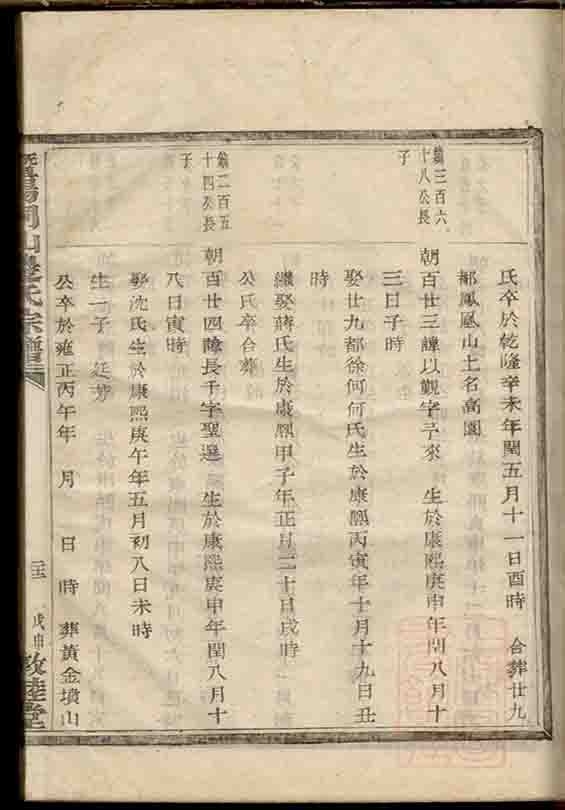 氏卒於乾隆辛未年閏五月十一日酉時　合葬廿九
都鳳凰山土名高園
鎬三百六
十八公長
子
朝百廿三諱以觀字予來　生於康熙庚申年閏八月十
三日子時
娶廿九都徐何何氏生於康熙丙寅年十月十九日丑
時
繼娶蔣氏生於康熙甲子年正月二十日戌時
公氏卒合葬
鎬二百五
十四公長
子
朝百廿四諱長千字聖選　生於康熙庚申年閏八月十
八日寅時
娶沈氏生於康熙庚午年五月初八日未時
生一子　廷芳
公卒於雍正丙午年　月　日　時　葬黃金墳山
暨陽同山邊氏宗譜
戊申
敦睦堂